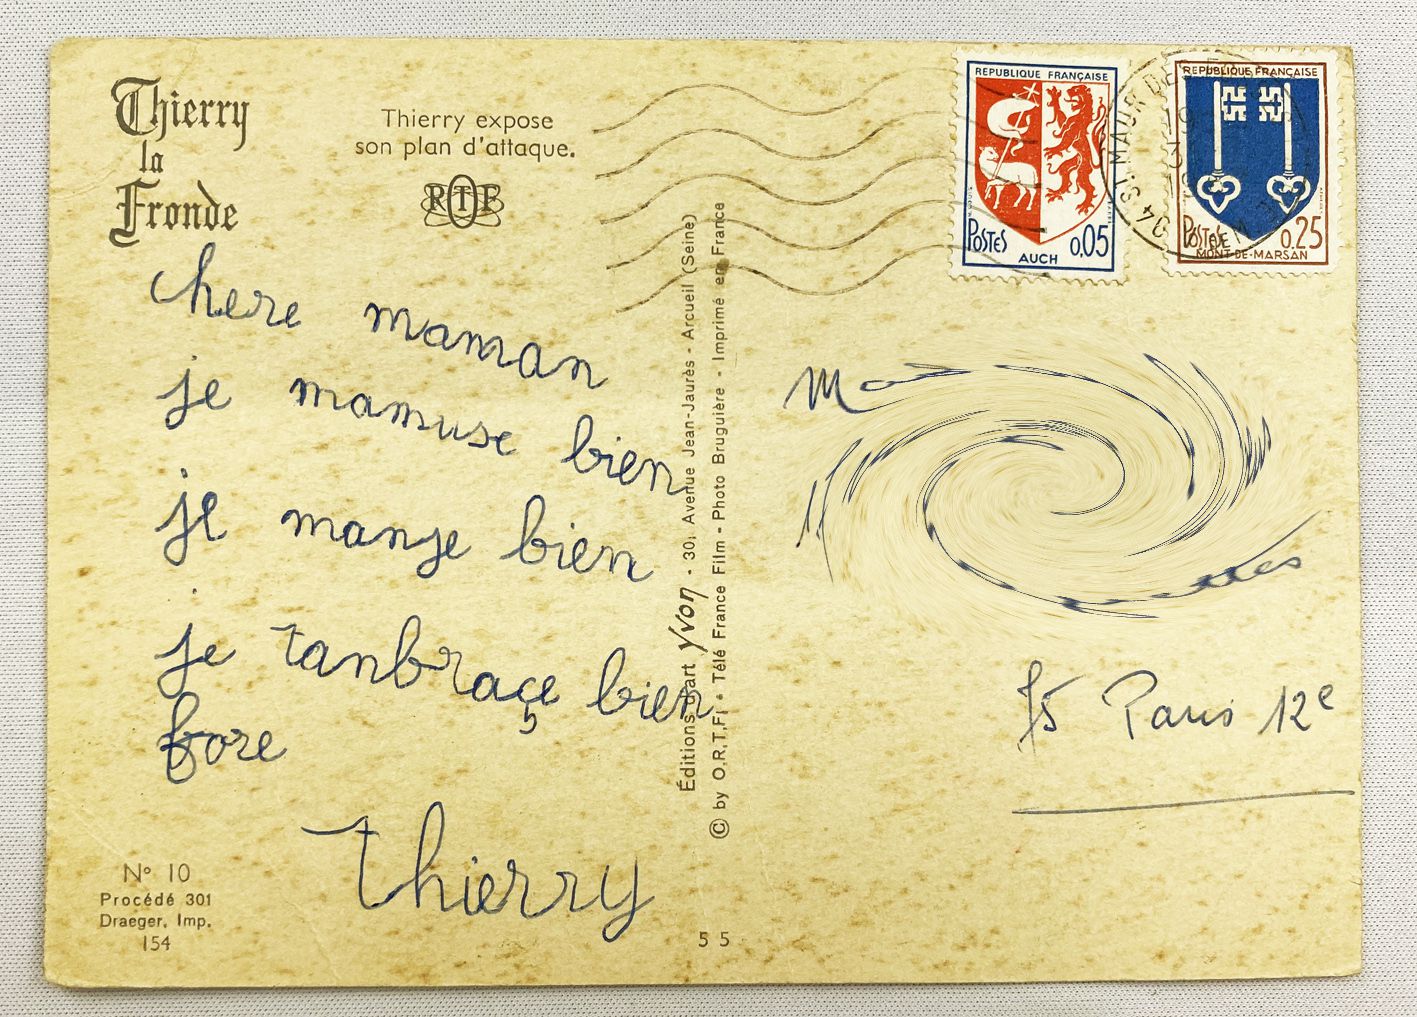 Thierry
la
Fronde
Thierry expose
son plan d'attaque.
ORTF
chere maman
je mamuse bien
je manje bien
je tanbraçe bien
fore
Thierry
N° 10
Procédé 301
Draeger, Imp.
154
Éditions d'art Yvon - 30, Avenue Jean-Jaurès - Arcueil (Seine)
© by O.R.T.F. - Télé France Film - Photo Bruguière - Imprimé en France
55
REPUBLIQUE FRANÇAISE
POSTES 0,05
AUCH
REPUBLIQUE FRANÇAISE
POSTES 0.25
MONT-DE-MARSAN
94 ST MAUR DES
75 Paris 12e